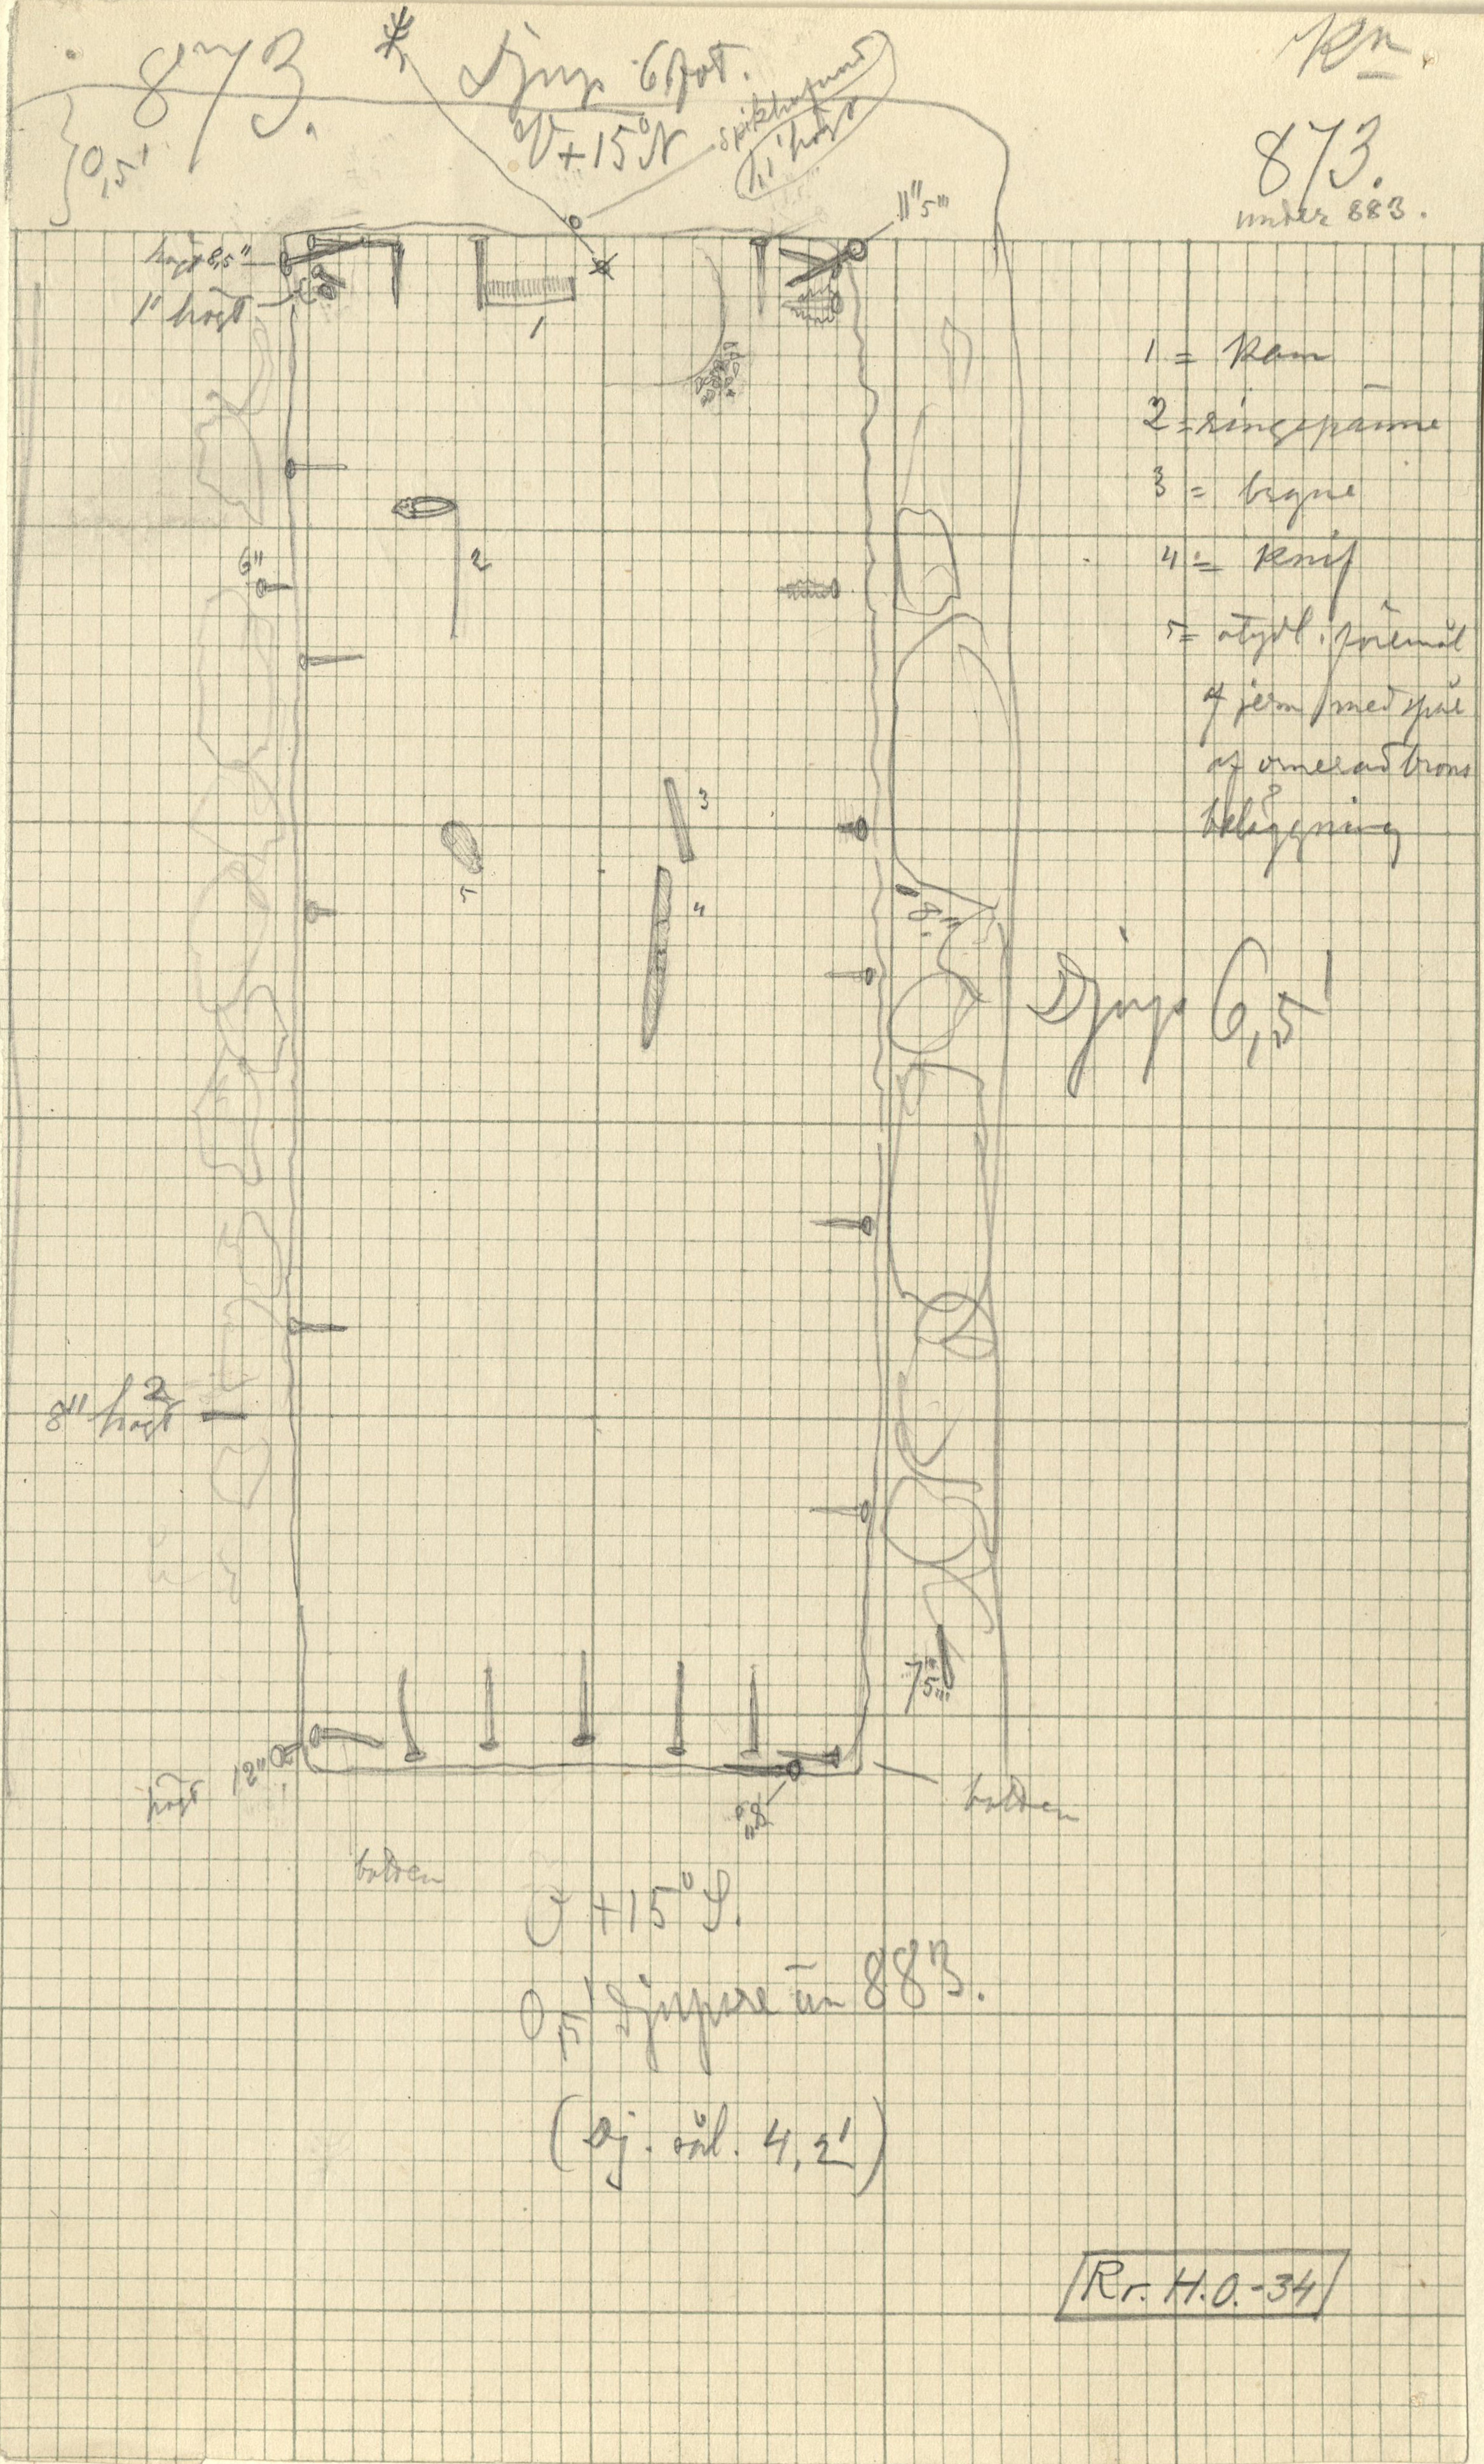 873.
Djup 6 fot.
V+15°N
spikhufvud
11' högt
Kn.
873.
under 883.
0,5'
11"5"'
högt 8,5"
1" högt
1
1 = Kam
2 = ringspänne
3 = bryne
4 = Knif
5 = otydl. föremål
af jern med spår
af ornerad brons
beläggning
2
6"
3
5
4
8"
Djup 6,5'
8" högt
2
7"5"'
12"
högt
8"
botten
botten
O+15°S.
0,5' djupare än 883.
(Dj. vål. 4,2')
Rr. H.O.-34